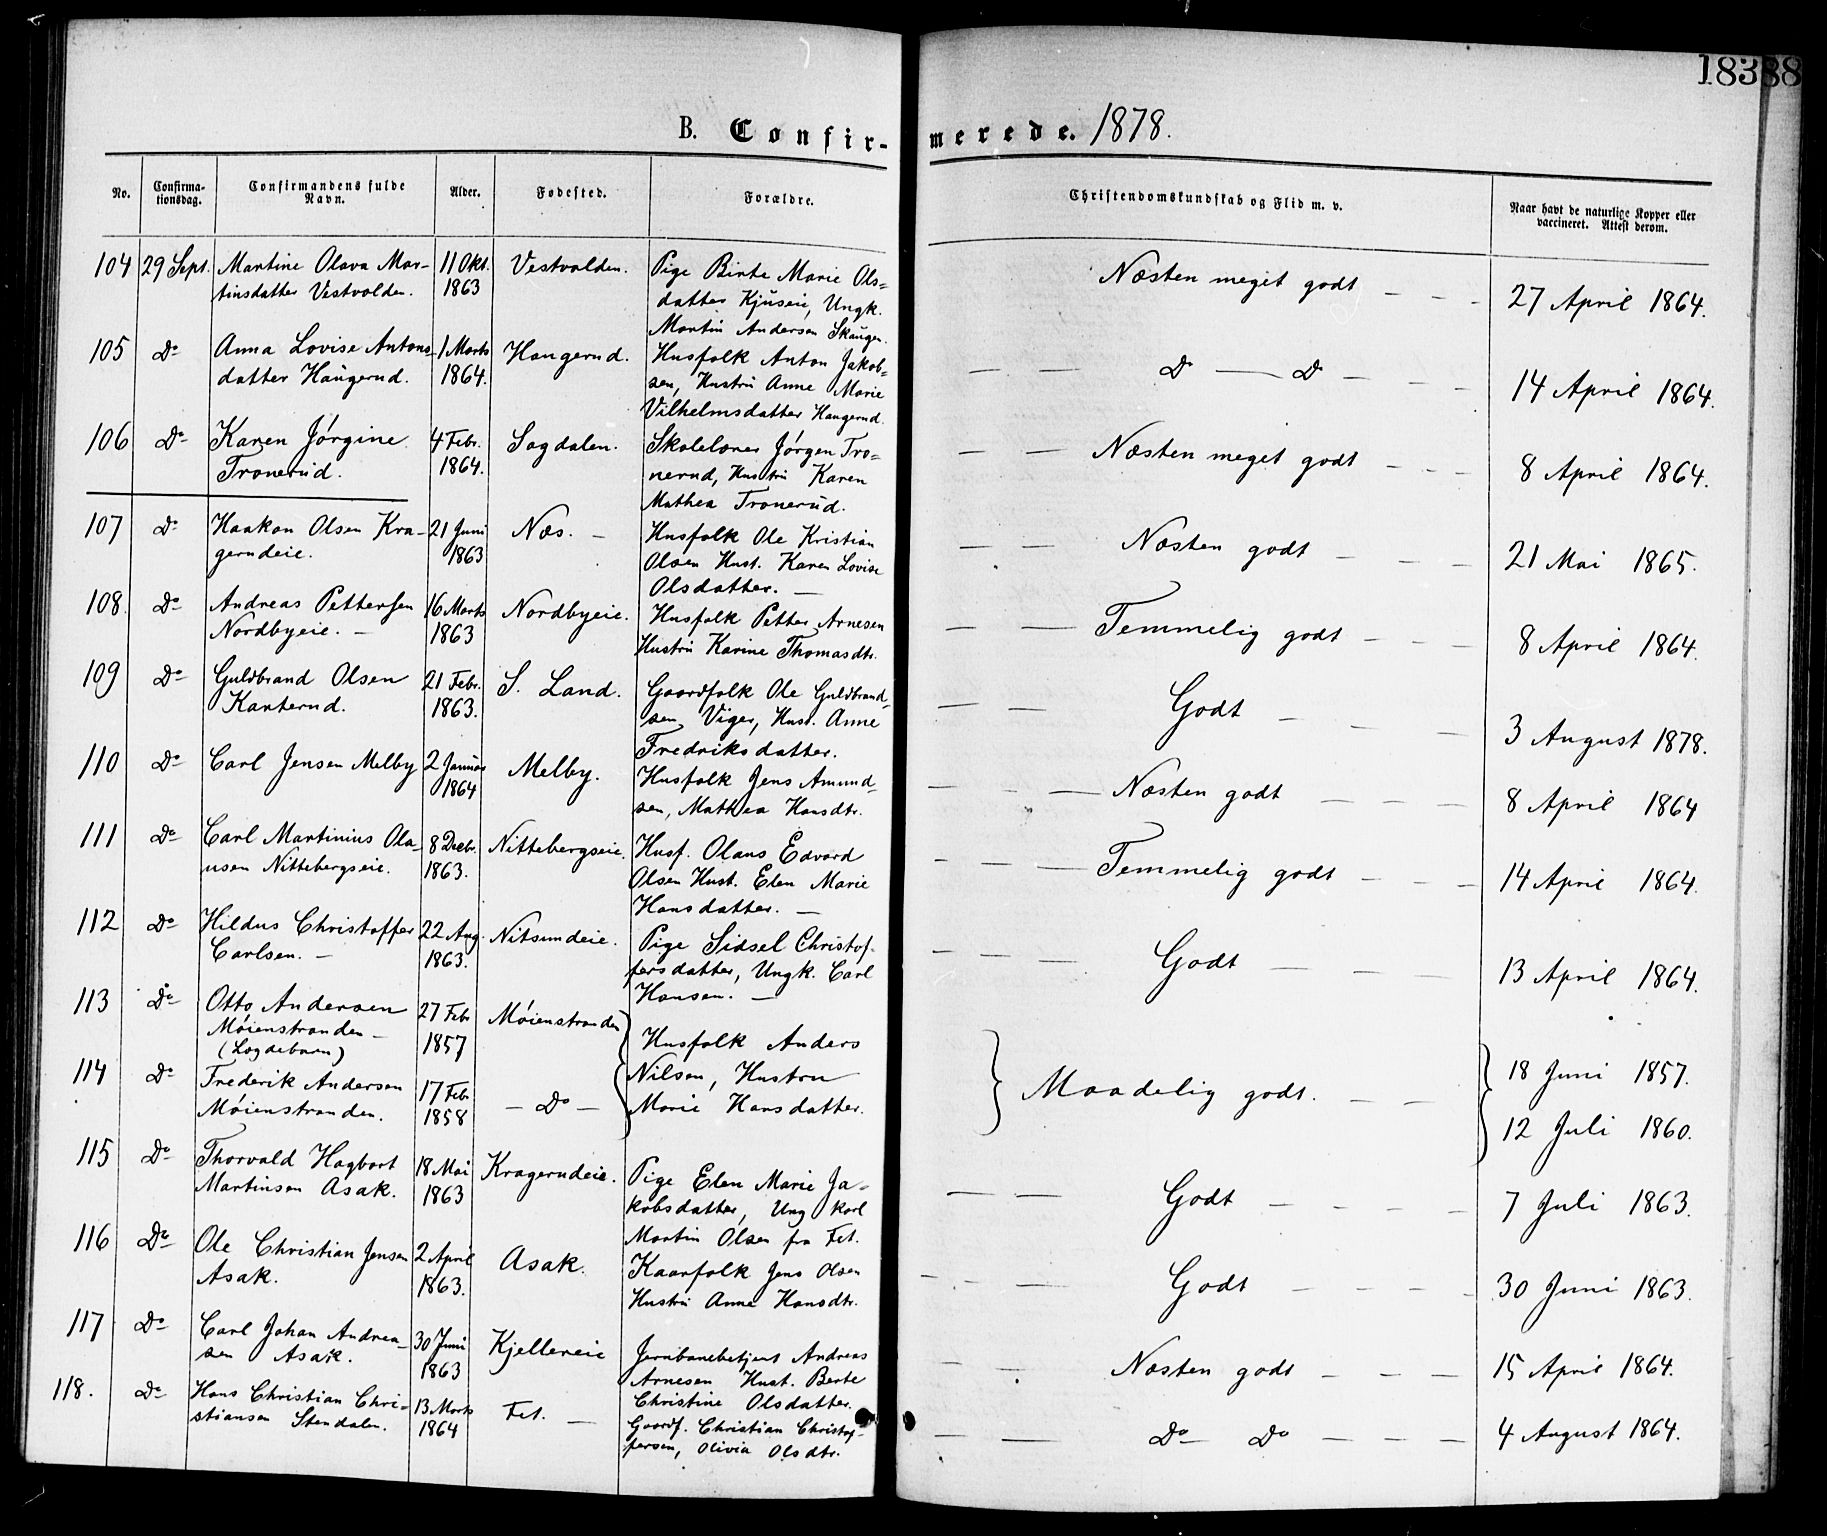 18388
B. Confir-
merede. 1878.
No.
Confirma-
tionsdag.
Confirmandens fulde
Navn.
Alder.
Fødested.
Forældre.
Christendomskundskab og Flid m. v.
Naar havt de naturlige Kopper eller
vaccineret. Attest derom.
104 29 Sept. Martine Olava Mar-
tinsdatter Vestvolden.
11 Okt.
1863
Vestvolden.
Pige Birte Marie Ols=
datter Kjuseie, Ungk.
Martin Andersen Skaugen.
Næsten meget godt — — —
27 April 1864.
105 Do Anna Lovise Antons-
datter Haugerud.
1 Marts
1864.
Haugerud.
Husfolk Anton Jakob=
sen, Hustru Anne Marie
Vilhelmsdatter Haugerud.
— — Do — Do — — —
14 April 1864.
106 Do Karen Jørgine
Tronerud.
4 Febr.
1864.
Sagdalen.
Skolelærer Jørgen Tro=
nerud, Hustru Karen
Mathea Tronerud.
— — Næsten meget godt — — —
8 April 1864.
107 Do Haakon Olsen Kra-
gerudeie.
21 Juni
1863
Næs. —
Husfolk Ole Kristian
Olsen Hust. Karen Lovise
Olsdatter. —
— — Næsten godt — — —
21 Mai 1865.
108. Do Andreas Pettersen
Nordbyeie. —
16 Marts
1863
Nordbyeie.
Husfolk Petter Arnesen
Hustru Karine Thomasdtr.
— — Temmelig godt — — —
8 April 1864.
109 Do Guldbrand Olsen
Kanterud.
21 Febr.
1863.
S. Land.
Gaardfolk Ole Guldbrand-
sen Viger, Hust. Anne
Fredriksdatter.
— — Godt — — —
3 August 1878.
110 Do Carl Jensen Melby
2 Januar
1864
Melby.
Husfolk Jens Amund-
sen, Mathea Hansdtr.
— — — Næsten godt — — —
8 April 1864
111 Do Carl Martinius Ola-
usen Nittebergseie.
8 Decbr.
1863.
Nittebergseie.
Husf. Olaus Edvard
Olsen Hust. Elen Marie
Hansdatter. —
— — — Temmelig godt — — —
14 April 1864.
112 Do Hildus Christoffer
Carlsen. —
22 Aug.
1863.
Nitsundeie.
Pige Sidsel Christof-
fersdatter, Ungk. Carl
Hansen. —
— — — Godt — — —
13 April 1864.
113 Do Otto Andersen
Møienstranden —
(Lægdebarn)
27 Febr
1857
Møienstranden
Husfolk Anders
Nilsen, Hustru
Marie Hansdatter.
Maadelig godt. — —
18 Juni 1857.
114 Do Frederik Andersen
Møienstranden.
17 Febr
1858
— Do —
12 Juli 1860.
115 Do Thorvald Hagbart
Martinsen Asak.
18 Mai
1863
Kragerudeie.
Pige Elen Marie Ja=
kobsdatter, Ung karl
Martin Olsen fra Fet.
— — Godt — — — —
7 Juli 1863.
116 Do Ole Christian Jensen
Asak.
2 April
1863.
Asak.
Kaarfolk Jens Olsen
Hustru Anne Hansdtr.
— — — Godt — — — —
30 Juni 1863.
117 Do Carl Johan Andrea-
sen Asak.
30 Juni
1863
Kjellereie
Jernbanebetjent Andreas
Arnesen Hust. Berte
Christine Olsdatter.
— — Næsten godt — — —
15 April 1864.
118. Do Hans Christian Chri=
stiansen Stendalen.
13 Marts
1864
Fet. —
Gaardf. Christian Christof-
fersen, Olivia Olsdtr.
— — Do Do — — —
4 August 1864.